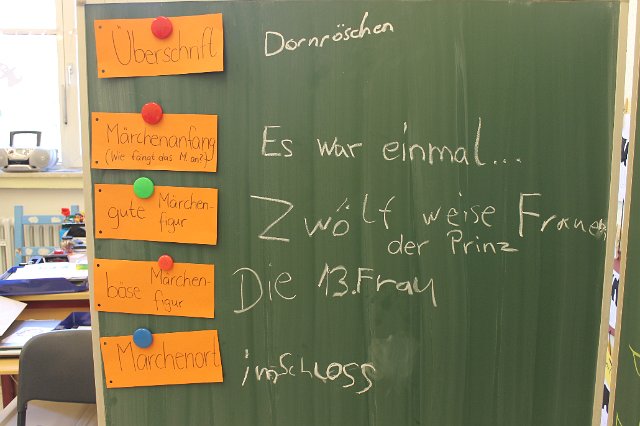 Überschrift
Dornröschen
Märchenanfang
(Wie fängt das M. an?)
Es war einmal...
gute Märchen-
figur
Zwölf weise Frauen
der Prinz
böse Märchen-
figur
Die 13. Frau
Märchenort
im Schloss